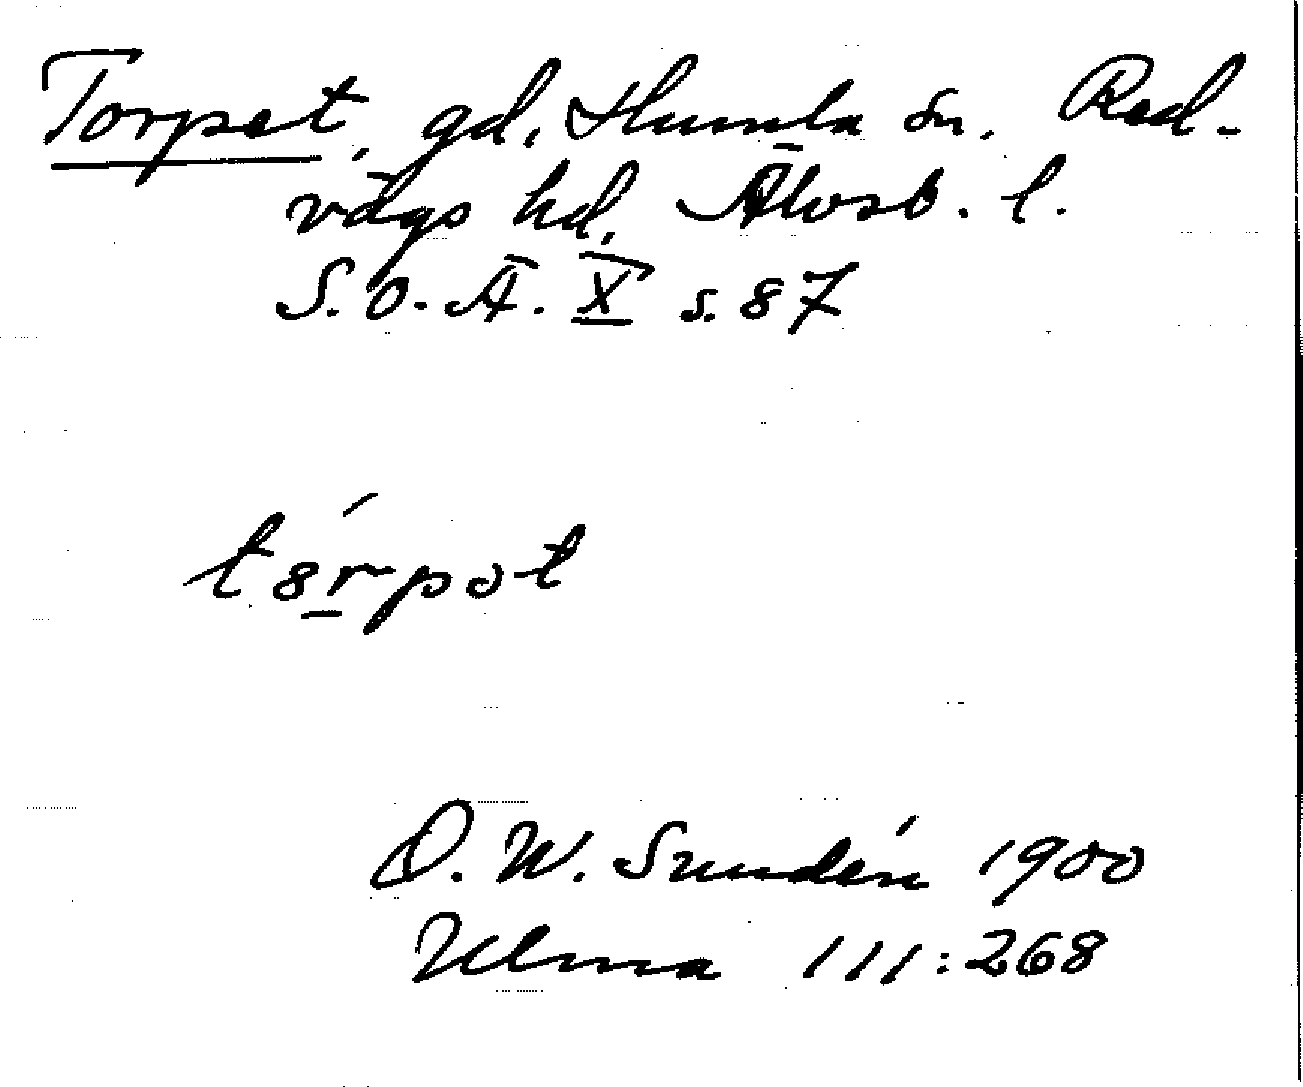 Torpet, gd, Humla sn. Red-
vägs hd, Älvsb. l.
S. O. Ä. X s. 87
t8́rpot
D. W. Sundén 1900
Ulma 111:268